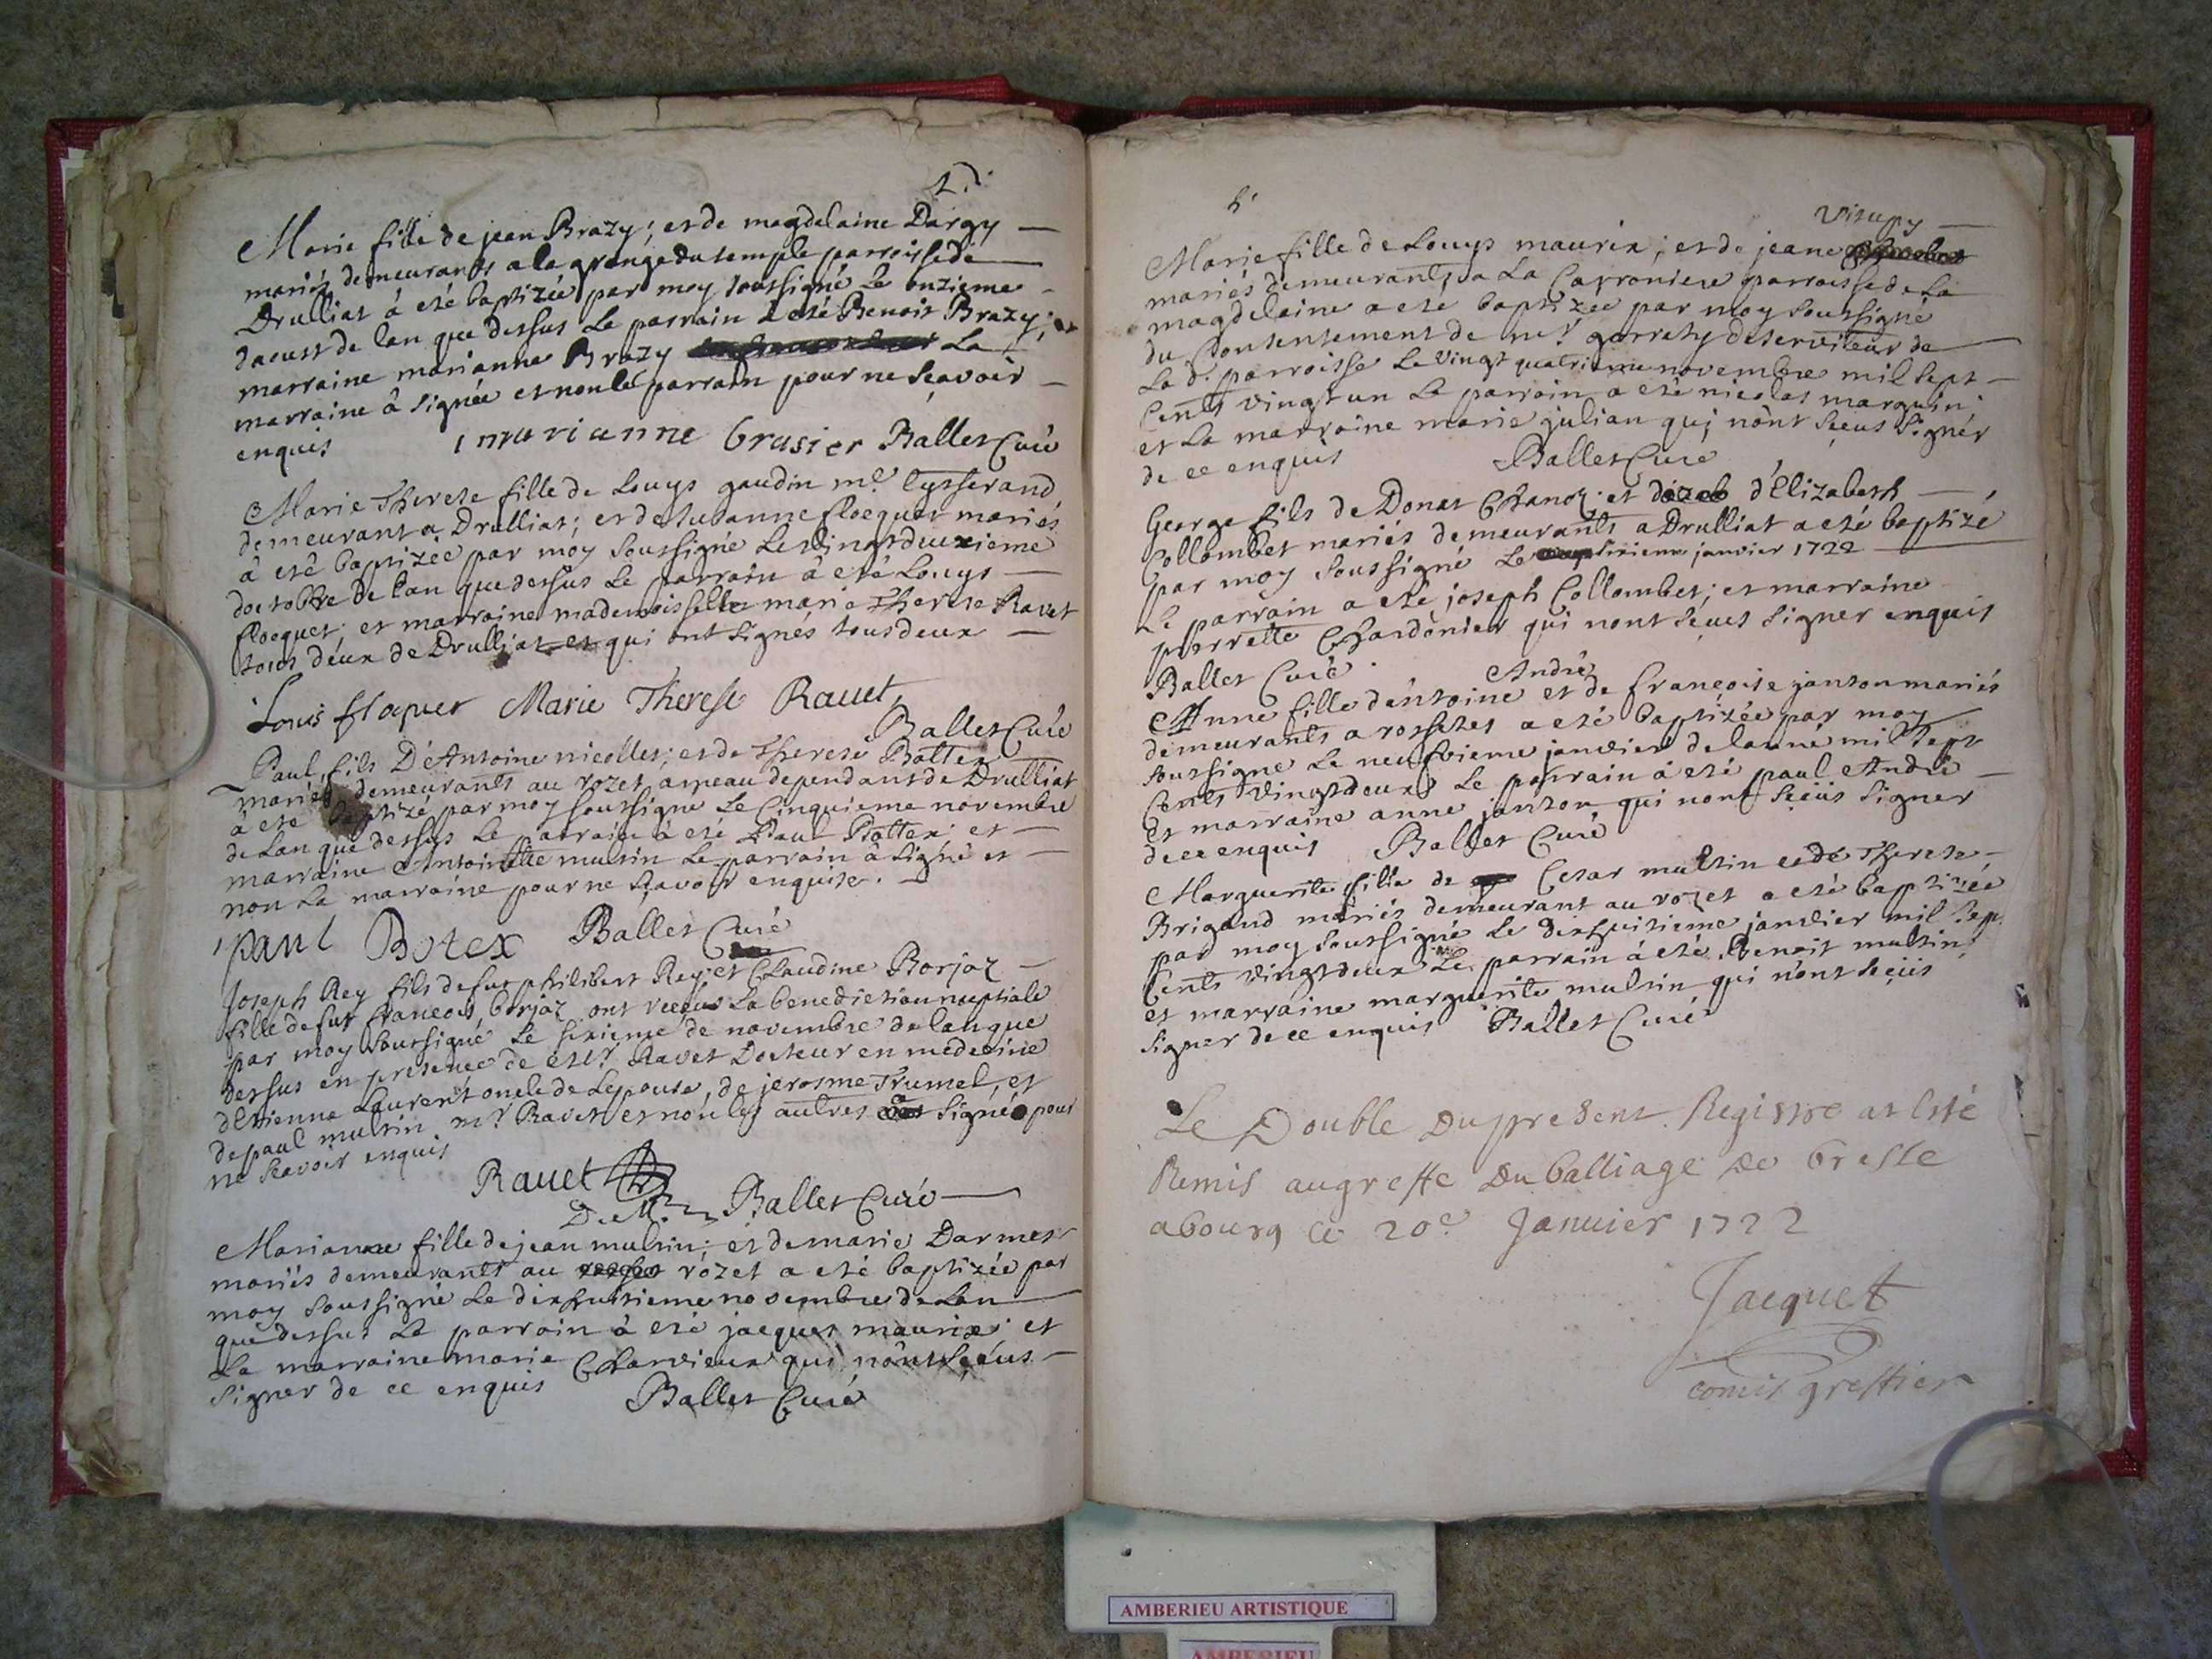 Marie fille de jean Brazy; et de magdelaine Dargy
mariés demeurants a la grange du temple parroisse de
Drulliat à eté baptizée par moy soussigné Le onzieme
daoust de lan que dessus Le parrain a eté Benoit Brazy; et
marraine marianne Brazy La
marraine à signée et non le parrain pour ne sçavoir
enquis marianne brasier Ballet Curé
Marie Therese fille de Louys gaudin me tysserand
demeurant a Drulliat; et de susanne flocquet mariés
à eté baptizée par moy soussigné Le vingt deuxieme
doctobre de l'an que dessus Le parrain à eté Louys
flocquet; et marraine mademoisselle marie Therese Ravet
tous deux de Drulliat et qui ont signés tous deux
Louis floquet Marie Therese Rauet
Ballet Curé
Paul, fils D'Antoine nicollet; et de Therese Bottex
mariés demeurants au rozet ameau dependant de Drulliat
à eté baptizé par moy soussigné Le Cinquieme novembre
de Lan que dessus Le parrain à eté Paul Bottex; et
marraine Antoinette multin Le parrain à signé et
non La marraine pour ne sçavoir enquise.
paul Botex Ballet Curé
Joseph Rey fils de fut philibert Rey; et Claudine Borjaz
fille de fut françois borjaz ont reçeus La benediction nuptiale
par moy soussigné Le sixieme de novembre de lan que
dessus en presence de Ravet Docteur en medecine
d'Etienne Laurent oncle de Lepouse, de jerosme Trumel, et
de paul multin mr Ravet et non les autres à signé pour
ne sçavoir enquis
Rauet
D. M. Ballet Curé
Marianne fille de jean multin; et de marie Darmet
mariés demeurants au rozet a eté baptizée par
moy soussigné Le dixhuitieme novembre de Lan
que dessus Le parrain à eté jacques maurix; et
La marraine marie Charvieux qui n'ont sçeus
signer de ce enquis Ballet Curé
Marie fille de Louys maurix; et de jeane
mariés demeurants a La Carroniere parroisse de La
magdelaine a eté baptizée par moy soussigné
du Consentement de mr garrety deserviteur de
La d. parroisse Le vingt quatrieme novembre mil sept
Cents vingt un Le parrain a eté nicolas marguin;
et La marraine marie julian qui n'ont sçeus signér
de ce enquis Ballet Curé
George fils de Donat Chanoz; et d'Elizabeth
Collombet mariés demeurants a Drulliat a eté baptizé
par moy soussigné Le sixieme janvier 1722
Le parrain a eté joseph Collombet; et marraine
pierrette Chardonier qui nont sçeus signer enquis
Ballet Curé
André
Anne fille d'entoine et de françoise janton mariés
demeurants a rossetes a eté baptizée par moy
soussigné Le neufvieme janvier de lanné mil sept
Cents vingt deux Le parrain à eté paul André
et marraine anne janton qui nont sçeüs signer
de ce enquis Ballet Curé
Marguerite fille de Cesar multin et de Therese
Brigand mariés demeurant au rozet a eté baptizée
par moy soussigné Le dixhuitieme janvier mil sept
Cents vingt deux Le parrain à eté Benoit multin;
et marraine marguerite multin qui n'ont sçeüs
signer de ce enquis Ballet Curé
Le Double Du present Registre at Esté
Remis au greffe Du balliage De bresse
a bourg Ce 20e Januier 1722
Jacquet
comis greffier
AMBERIEU ARTISTIQUE
AMBERIEU